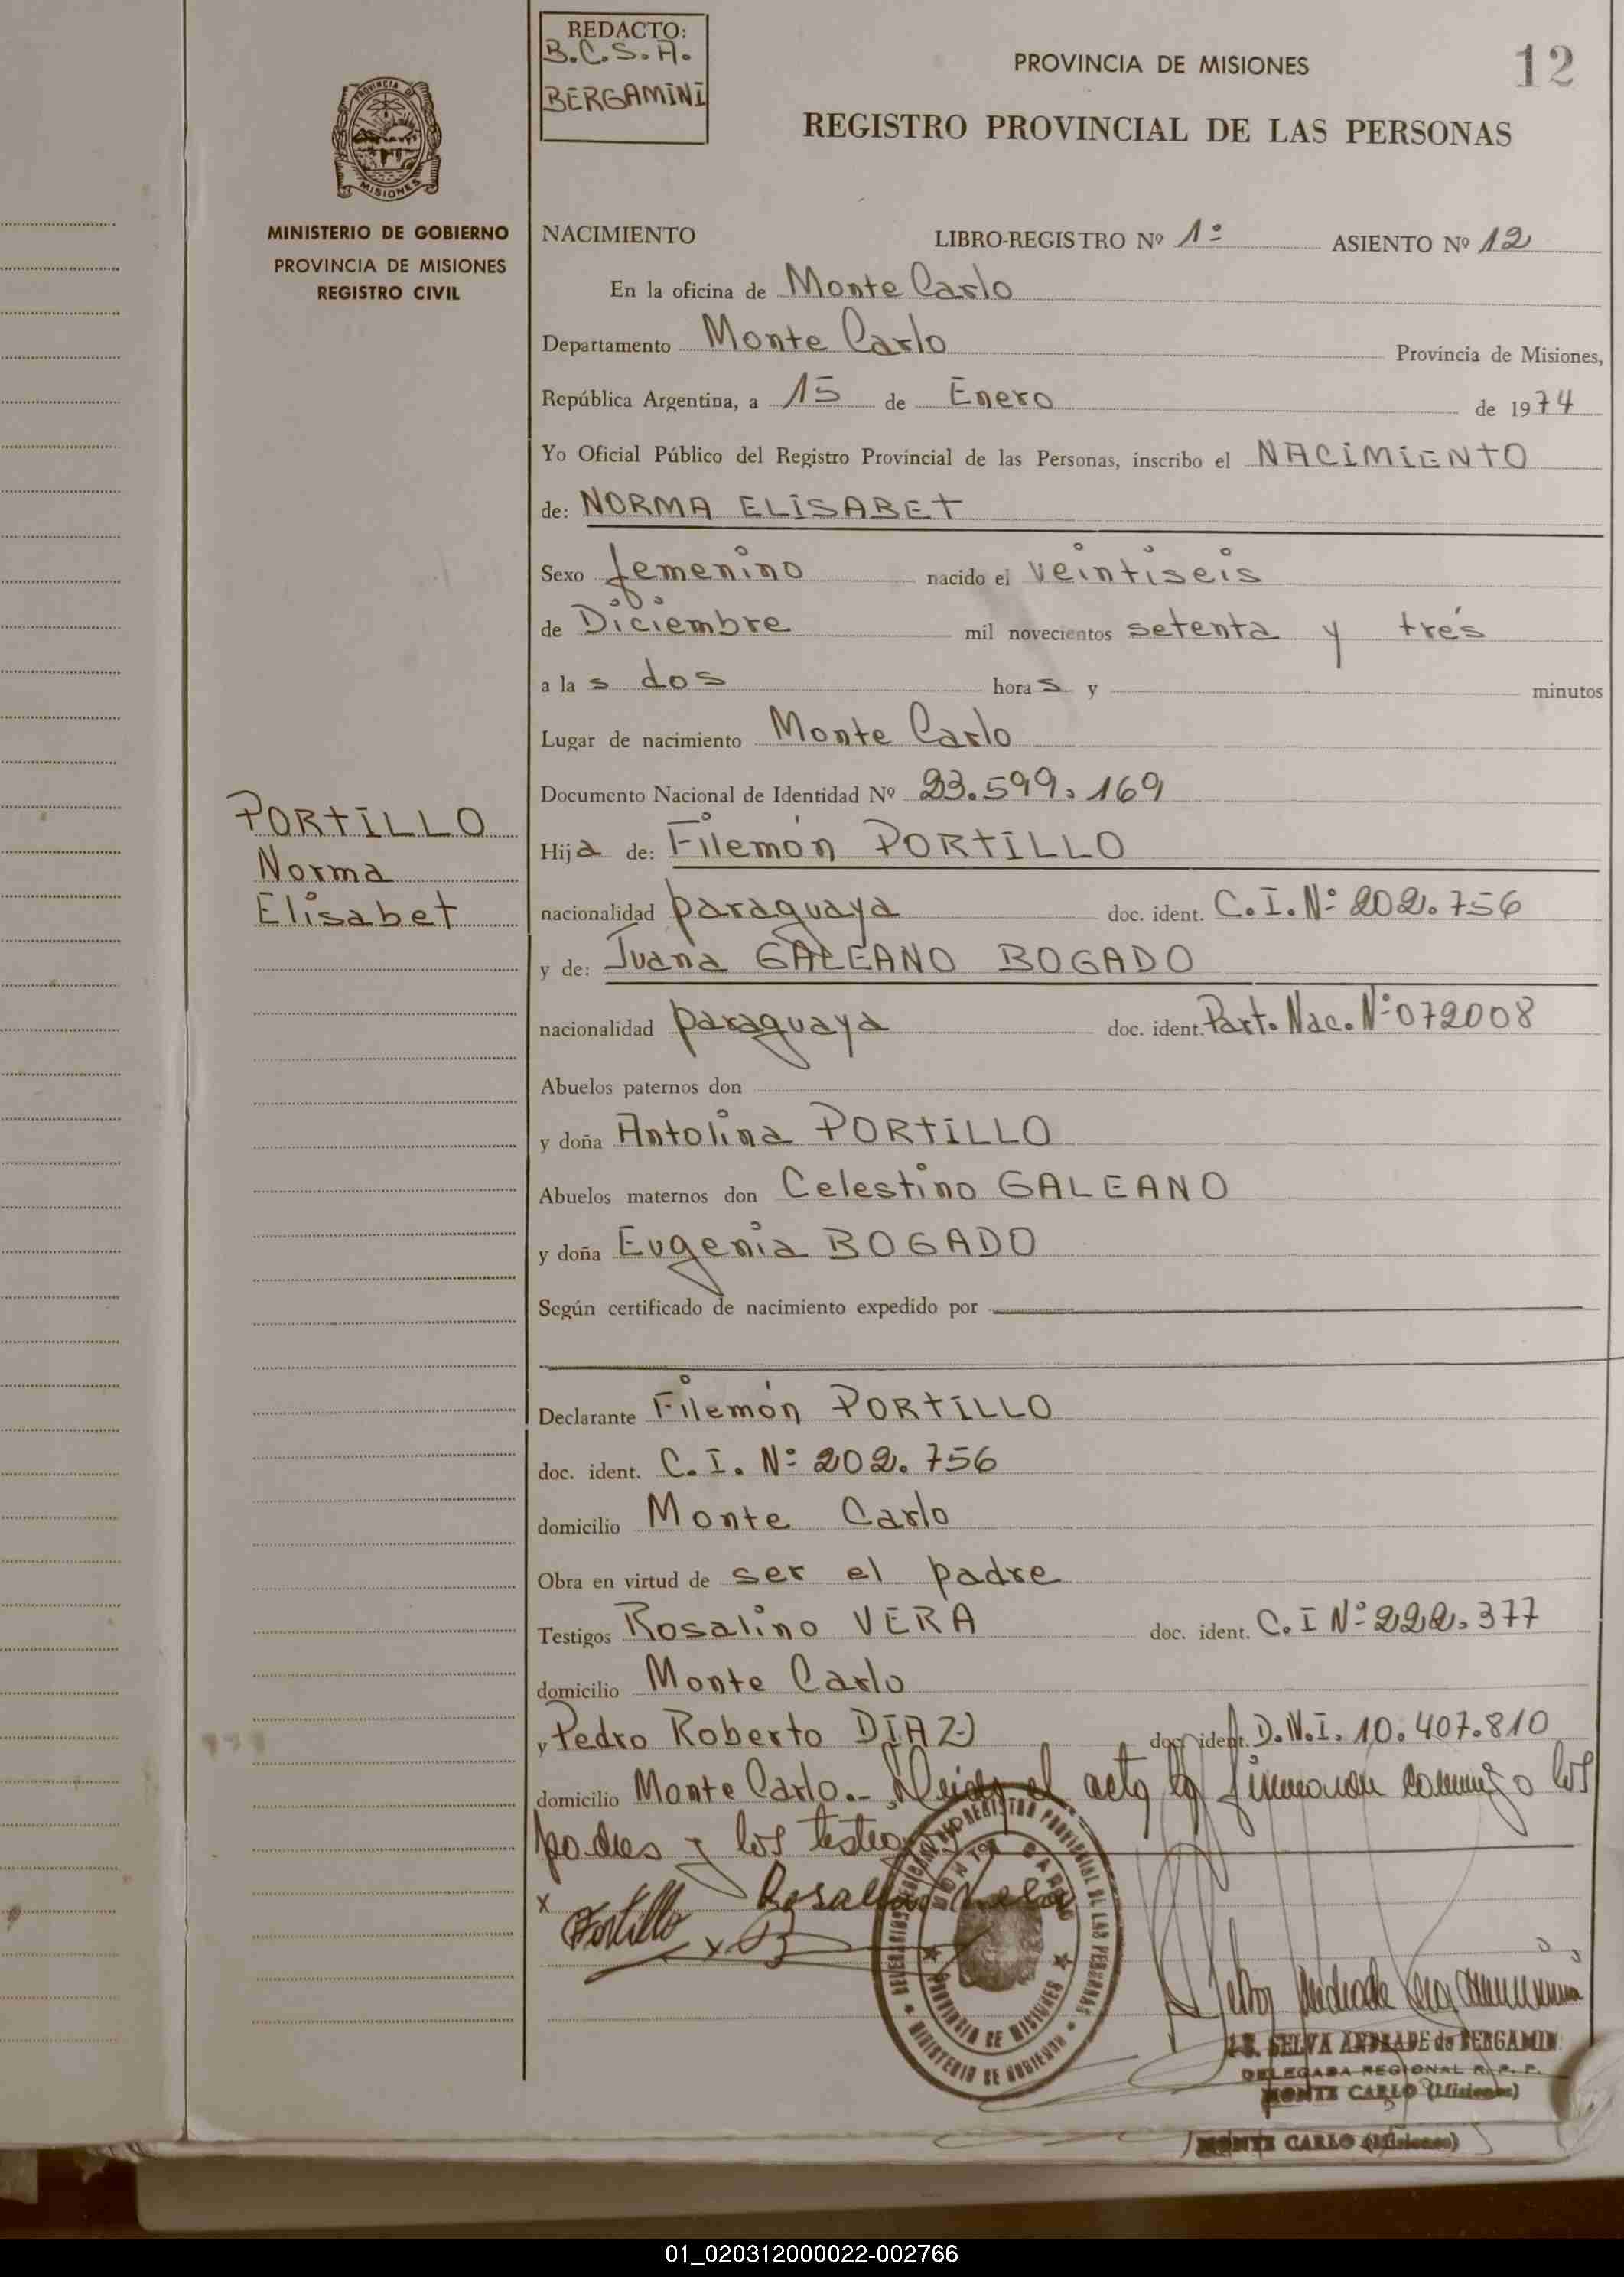 REDACTO:
B.C.S.A.
BERGAMINI
PROVINCIA DE MISIONES
12
REGISTRO PROVINCIAL DE LAS PERSONAS
PROVINCIA DE
MISIONES
MINISTERIO DE GOBIERNO
PROVINCIA DE MISIONES
REGISTRO CIVIL
NACIMIENTO LIBRO-REGISTRO Nº 1º ASIENTO Nº 12
En la oficina de Monte Carlo
Departamento Monte Carlo Provincia de Misiones,
República Argentina, a 15 de Enero de 1974
Yo Oficial Público del Registro Provincial de las Personas, inscribo el NACIMIENTO
de: NORMA ELISABET
Sexo femenino nacido el veintiseis
de Diciembre mil novecientos setenta y trés
a las dos horas y minutos
Lugar de nacimiento Monte Carlo
Documento Nacional de Identidad Nº 23.599.169
PORTILLO
Norma
Elisabet
Hija de: Filemón PORTILLO
nacionalidad paraguaya doc. ident. C.I. Nº 202.756
y de: Juana GALEANO BOGADO
nacionalidad paraguaya doc. ident. Part. Nac. Nº 072008
Abuelos paternos don
y doña Antolina PORTILLO
Abuelos maternos don Celestino GALEANO
y doña Eugenia BOGADO
Según certificado de nacimiento expedido por
Declarante Filemón PORTILLO
doc. ident. C.I. Nº 202.756
domicilio Monte Carlo
Obra en virtud de ser el padre
Testigos Rosalino VERA doc. ident. C.I Nº 222.377
domicilio Monte Carlo
y Pedro Roberto DIAZ doc. ident. D.N.I. 10.407.810
domicilio Monte Carlo.- Leida el acta la firmaron conmigo los
padres y los testigos
x Portillo
REGISTRO PROVINCIAL DE LAS PERSONAS
MONTE CARLO
PROVINCIA DE MISIONES
MINISTERIO DE GOBIERNO
SELVA ANDRADE de BERGAMINI
DELEGADA REGIONAL R. P. P.
MONTE CARLO (Misiones)
MONTE CARLO (Misiones)
01_020312000022-002766